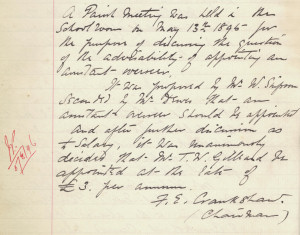 A Parish Meeting was held in the
Schoolroom on May 13th 1896 for
the purpose of discussing the question
of the advisability of appointing an
assistant overseer.
It was proposed by Mr W.
seconded by Mr Dewes that an
assistant overseer should be appointed
and after further discussion as
to Salary, it was unanimously
decided that Mr. T. W. Gilliand be
appointed at the rate of
£3. per annum.
F. E. Crankshaw.
(Chairman)